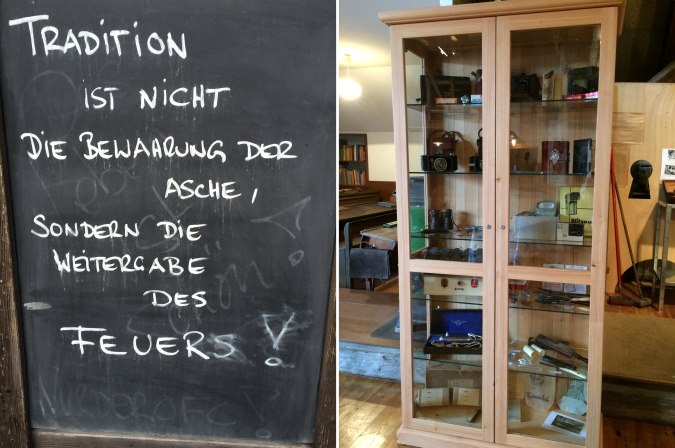 TRADITION
IST NICHT
DIE BEWAHRUNG DER
ASCHE,
SONDERN DIE
WEITERGABE
DES
FEUERS!